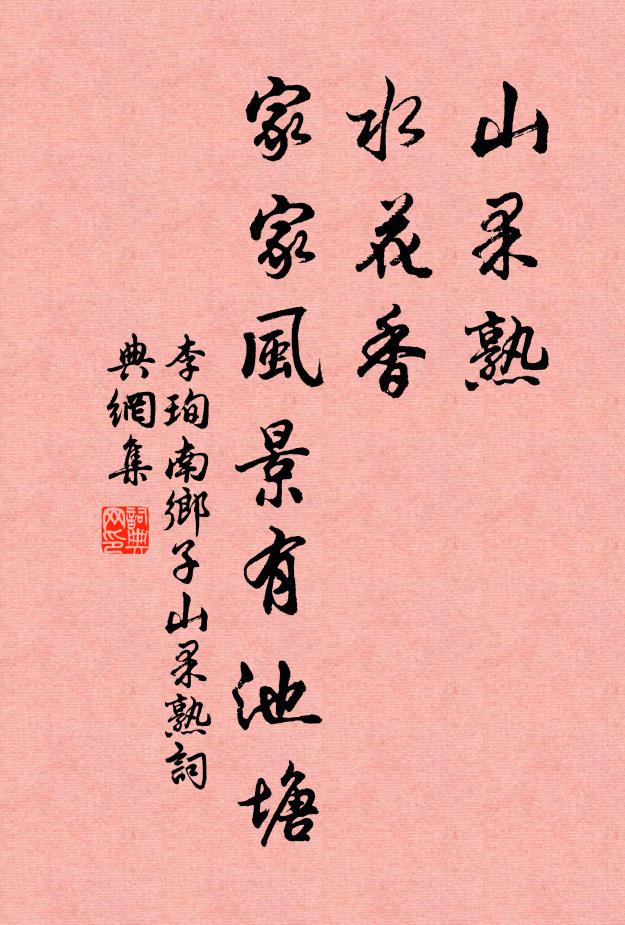 山果熟
水花香
家家風景有池塘
李珣南鄉子山果熟詞
典網集
詞典網印